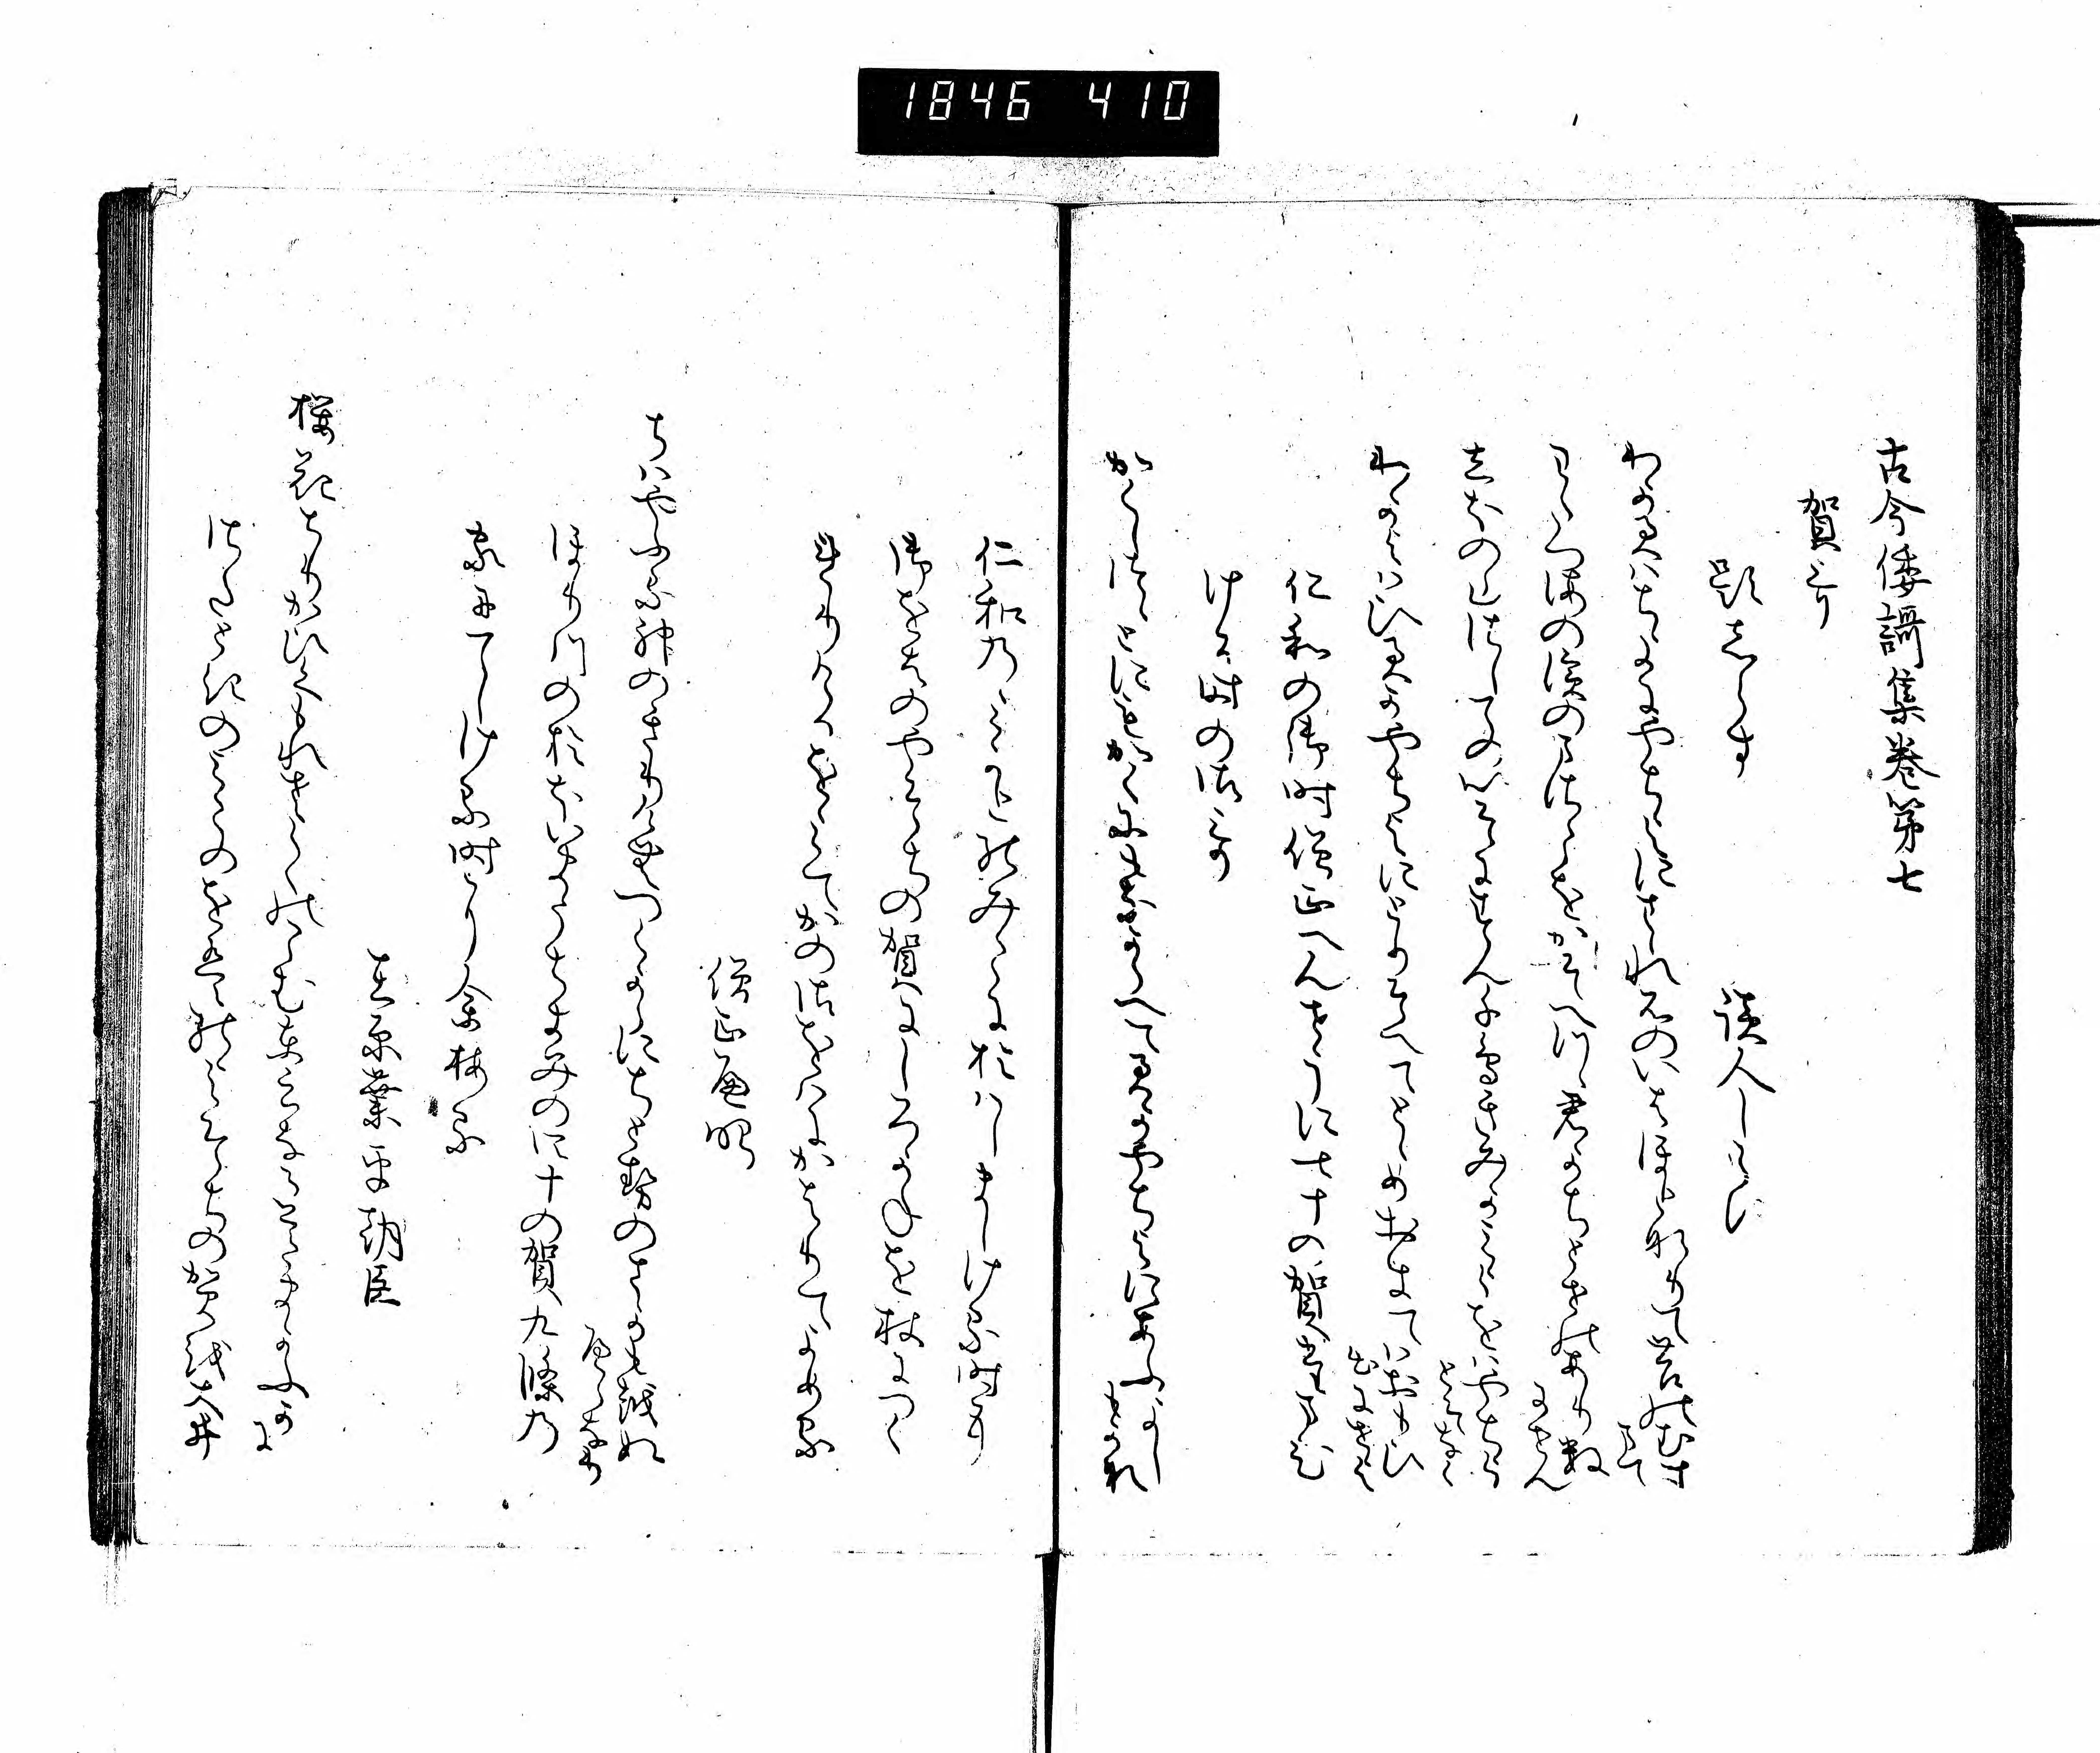 1846 410
古今倭謌集巻第七
賀哥
題しらす
読人しらす
わか君はちよにやちよにさゝれ石のいはほとなりて苔のむす
まて
わたつ海の濱のまさこをかそへつゝ君かちとせのあり数
にせん
しほの山さしてのいそにすむ千鳥きみかみよをはやちよ
とそなく
わかよはひ君かやちよにとりそへてとゝめおきてはおもひ
いてにせよ
仁和の御時僧正へんせうに七十の賀たまひ
ける時の御哥
かくしつゝとにもかくにもなからへて君かやちよにあふよし
もかな
仁和乃みかとのみこにおはしましける時に
御をはのやそちの賀にしろかねを杖につく
れりけるをみてかの御をはにかはりてよめる
僧正遍昭
ちはやふる神のきりけむつくからにちとせのさかも越ぬ
へらなり
ほり川のおほいまうちきみの四十の賀九條乃
家にてしける時によめる
在原業平朝臣
桜花ちりかひくもれおいらくのこむといふなるみちまかふか
に
さたときのみこのをはのよそちの賀を大井